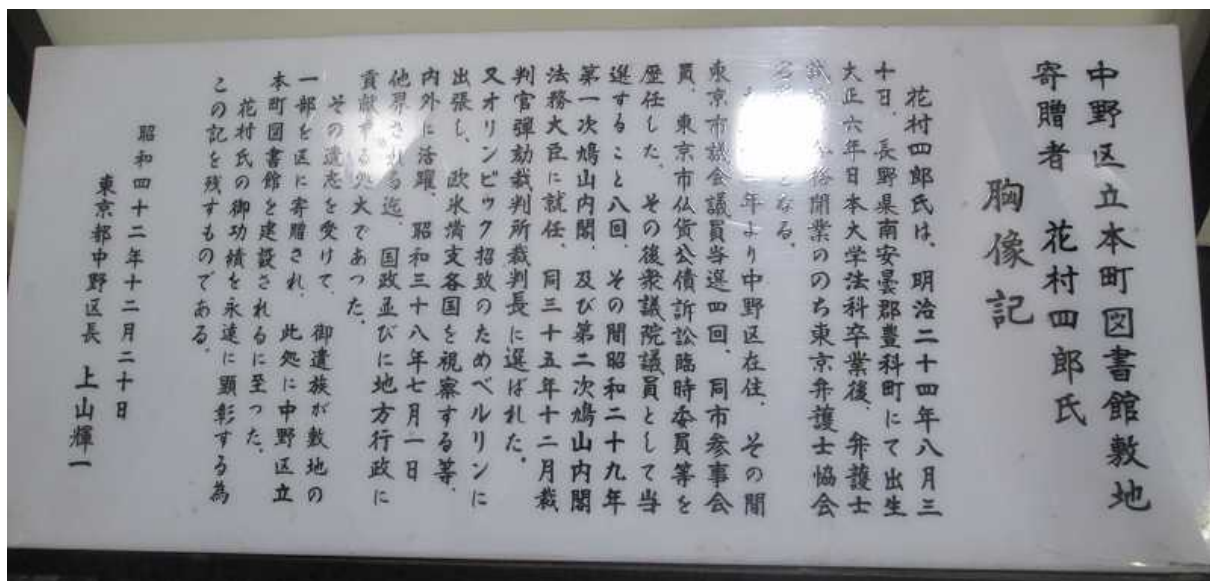 中野区立本町図書館敷地
寄贈者 花村四郎氏
胸像記
花村四郎氏は、明治二十四年八月三
十日、長野県南安曇郡豊科町にて出生
大正六年日本大学法科卒業後、弁護士
試 格開業ののち東京弁護士協会
となる。
年より中野区在住、その間
東京市議会議員当選四回、同市参事会
員、東京市仏貨公債訴訟臨時委員等を
歴任した。その後衆議院議員として当
選すること八回、その間昭和二十九年
第一次鳩山内閣、及び第二次鳩山内閣
法務大臣に就任、同三十五年十二月裁
判官弾劾裁判所裁判長に選ばれた。
又オリンピック招致のためベルリンに
出張し、欧米満支各国を視察する等、
内外に活躍、昭和三十八年七月一日
他界される迄、国政並びに地方行政に
貢献する処大であった。
その遺志を受けて、御遺族が敷地の
一部を区に寄贈され、此処に中野区立
本町図書館を建設されるに至った。
花村氏の御功績を永遠に顕彰する為
この記を残すものである。
昭和四十二年十二月二十日
東京都中野区長 上山輝一